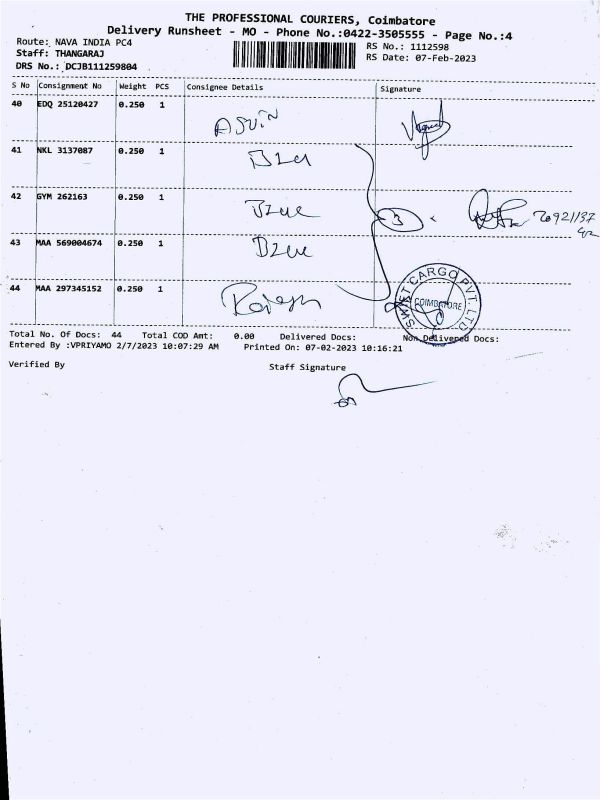 THE PROFESSIONAL COURIERS, Coimbatore
Delivery Runsheet - MO - Phone No.:0422-3505555 - Page No.:4
Route: NAVA INDIA PC4
RS No.: 1112598
Staff: THANGARAJ
RS Date: 07-Feb-2023
DRS No.: DCJB111259804
S No Consignment No Weight PCS Consignee Details Signature
40 EDQ 25120427 0.250 1 ASVIN
41 NKL 3137087 0.250 1
42 GYM 262163 0.250 1 Blue
3
43 MAA 569004674 0.250 1 Blue
44 MAA 297345152 0.250 1
SWIFT CARGO PVT. LTD
COIMBATORE
Total No. Of Docs: 44 Total COD Amt: 0.00 Delivered Docs: Non Delivered Docs:
Entered By :VPRIYAMO 2/7/2023 10:07:29 AM Printed On: 07-02-2023 10:16:21
Verified By Staff Signature